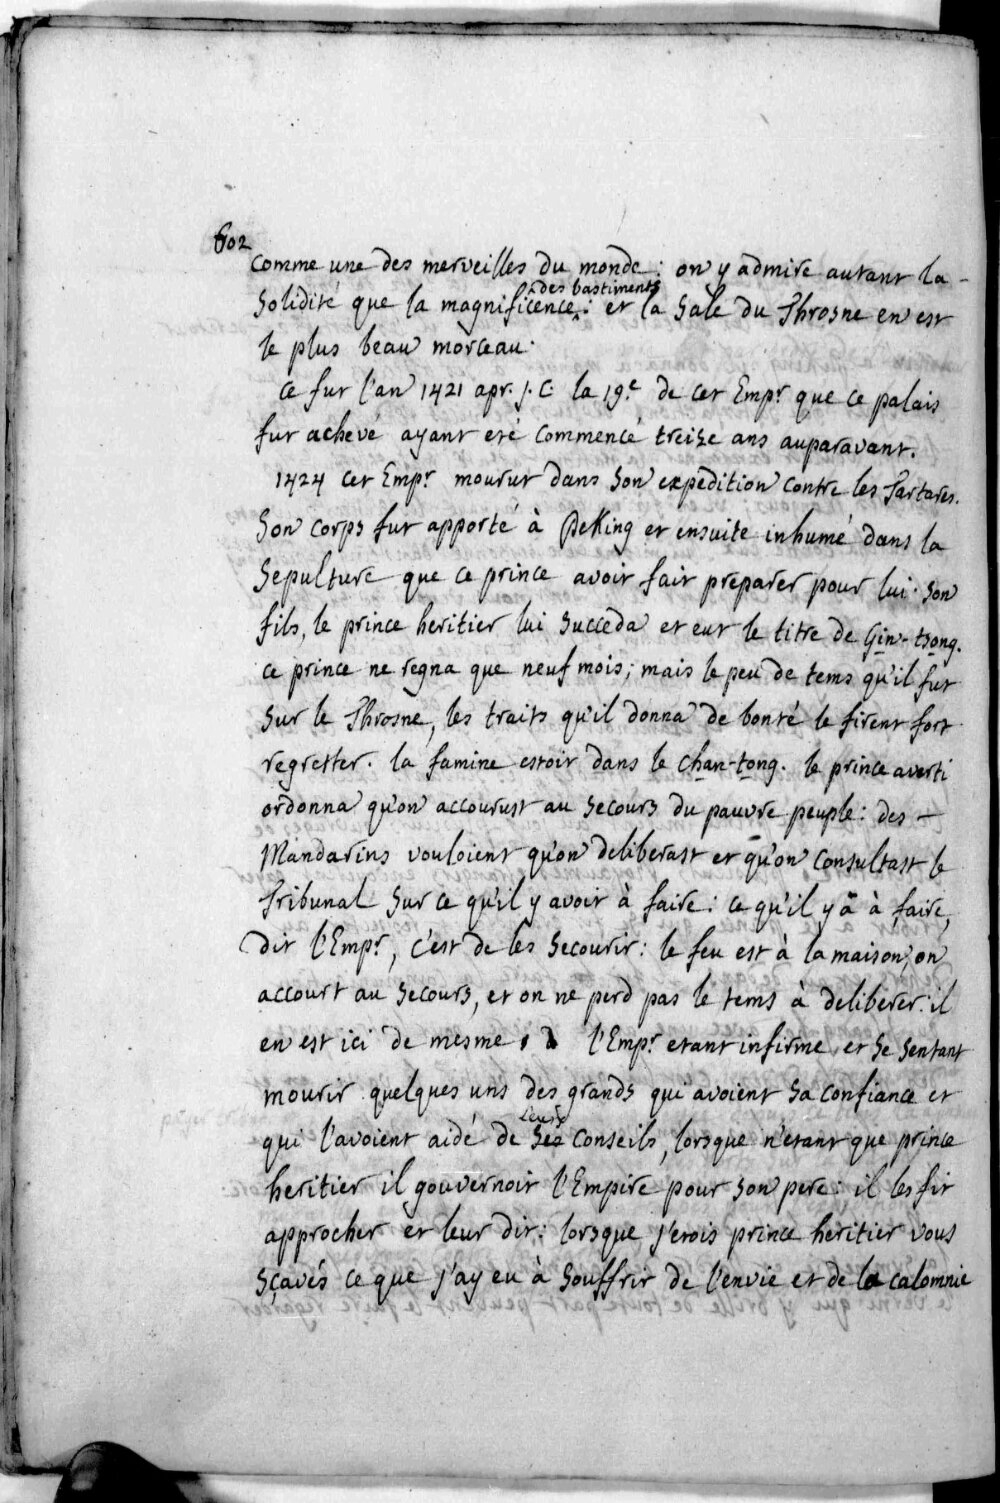 602
comme une des merveilles du monde : on y admire autant la -
solidité que la magnificence des bastiments : et la sale du Throsne en est
le plus beau morceau.
ce fut l'an 1421 apr. J. C. la 19.e de cet Emp.r que ce palais
fut achevé ayant eté commencé treize ans auparavant.
1424 cet Emp.r mourut dans son expedition contre les Tartares.
son corps fut apporté à PeKing et ensuite inhumé dans la
sepulture que ce prince avoit fait preparer pour lui. son
fils, le prince heritier lui succeda et eut le titre de Gin-tsong.
ce prince ne regna que neuf mois; mais le peu de tems qu'il fut
sur le Throsne, les traits qu'il donna de bonté le firent fort
regretter. la famine estoit dans le chan-tong. le prince averti
ordonna qu'on accourust au secours du pauvre peuple : des -
Mandarins vouloient qu'on deliberast et qu'on consultast le
Tribunal sur ce qu'il y avoit à faire : ce qu'il y a à faire,
dit l'Emp.r, c'est de les secourir : le feu est à la maison, on
accourt au secours, et on ne perd pas le tems à deliberer. il
en est ici de mesme. l'Emp.r etant infirme et se sentant
mourir quelques uns des grands qui avoient sa confiance et
qui l'avoient aidé de leurs conseils, lorsque n'etant que prince
heritier il gouvernoit l'Empire pour son pere : il les fit
approcher et leur dit : lorsque j'etois prince heritier vous
sçavés ce que j'ay eu à souffrir de l'envie et de la calomnie